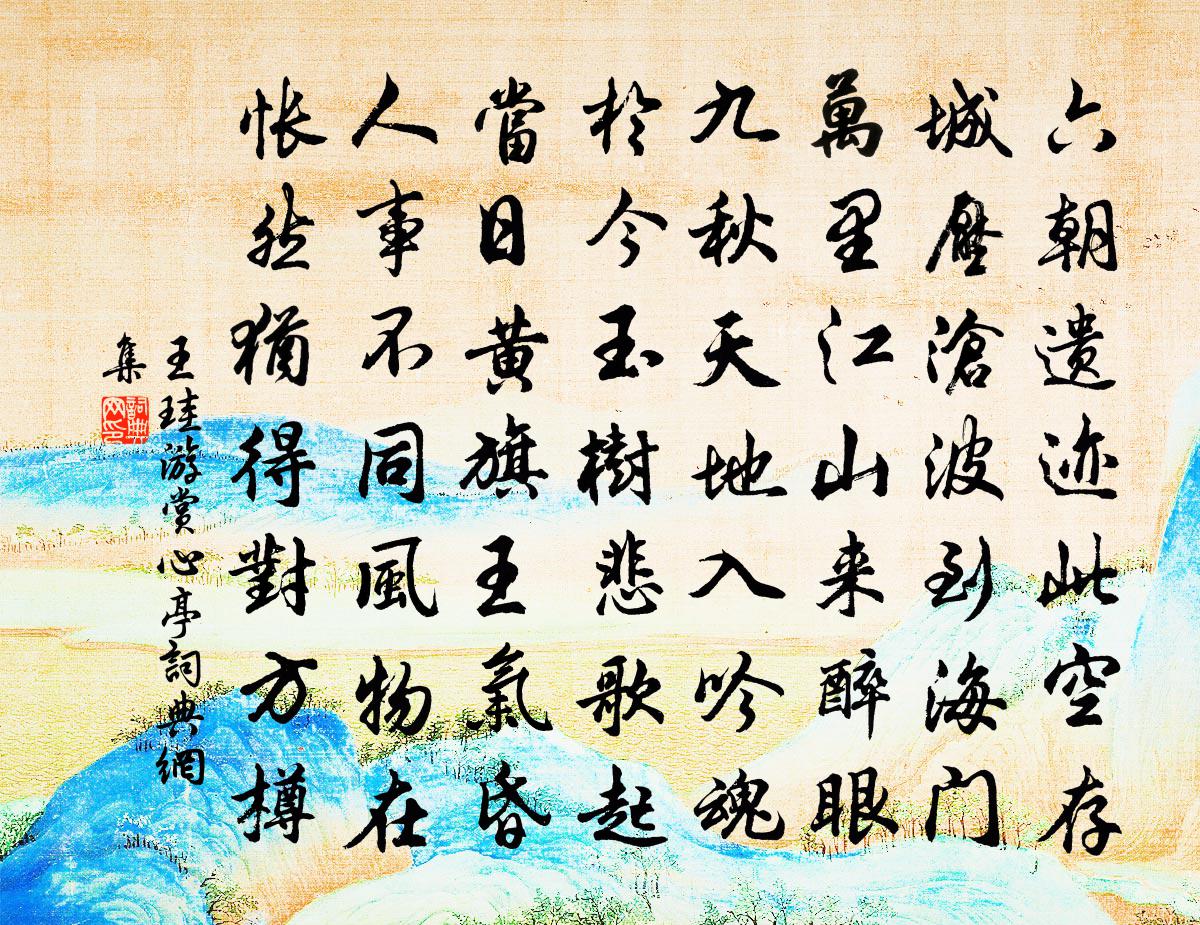 六朝遗迹此空存
城壓滄波到海门
萬里江山来醉眼
九秋天地入吟魂
於今玉樹悲歌起
當日黄旗王氣昏
人事不同風物在
悵然猶得對方樽
王珪游赏心亭詞典網
集
詞典
网印